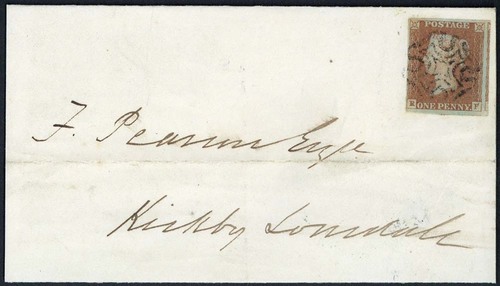 POSTAGE
ONE PENNY
F. Pearson Esqr
Kirkby Lonsdale